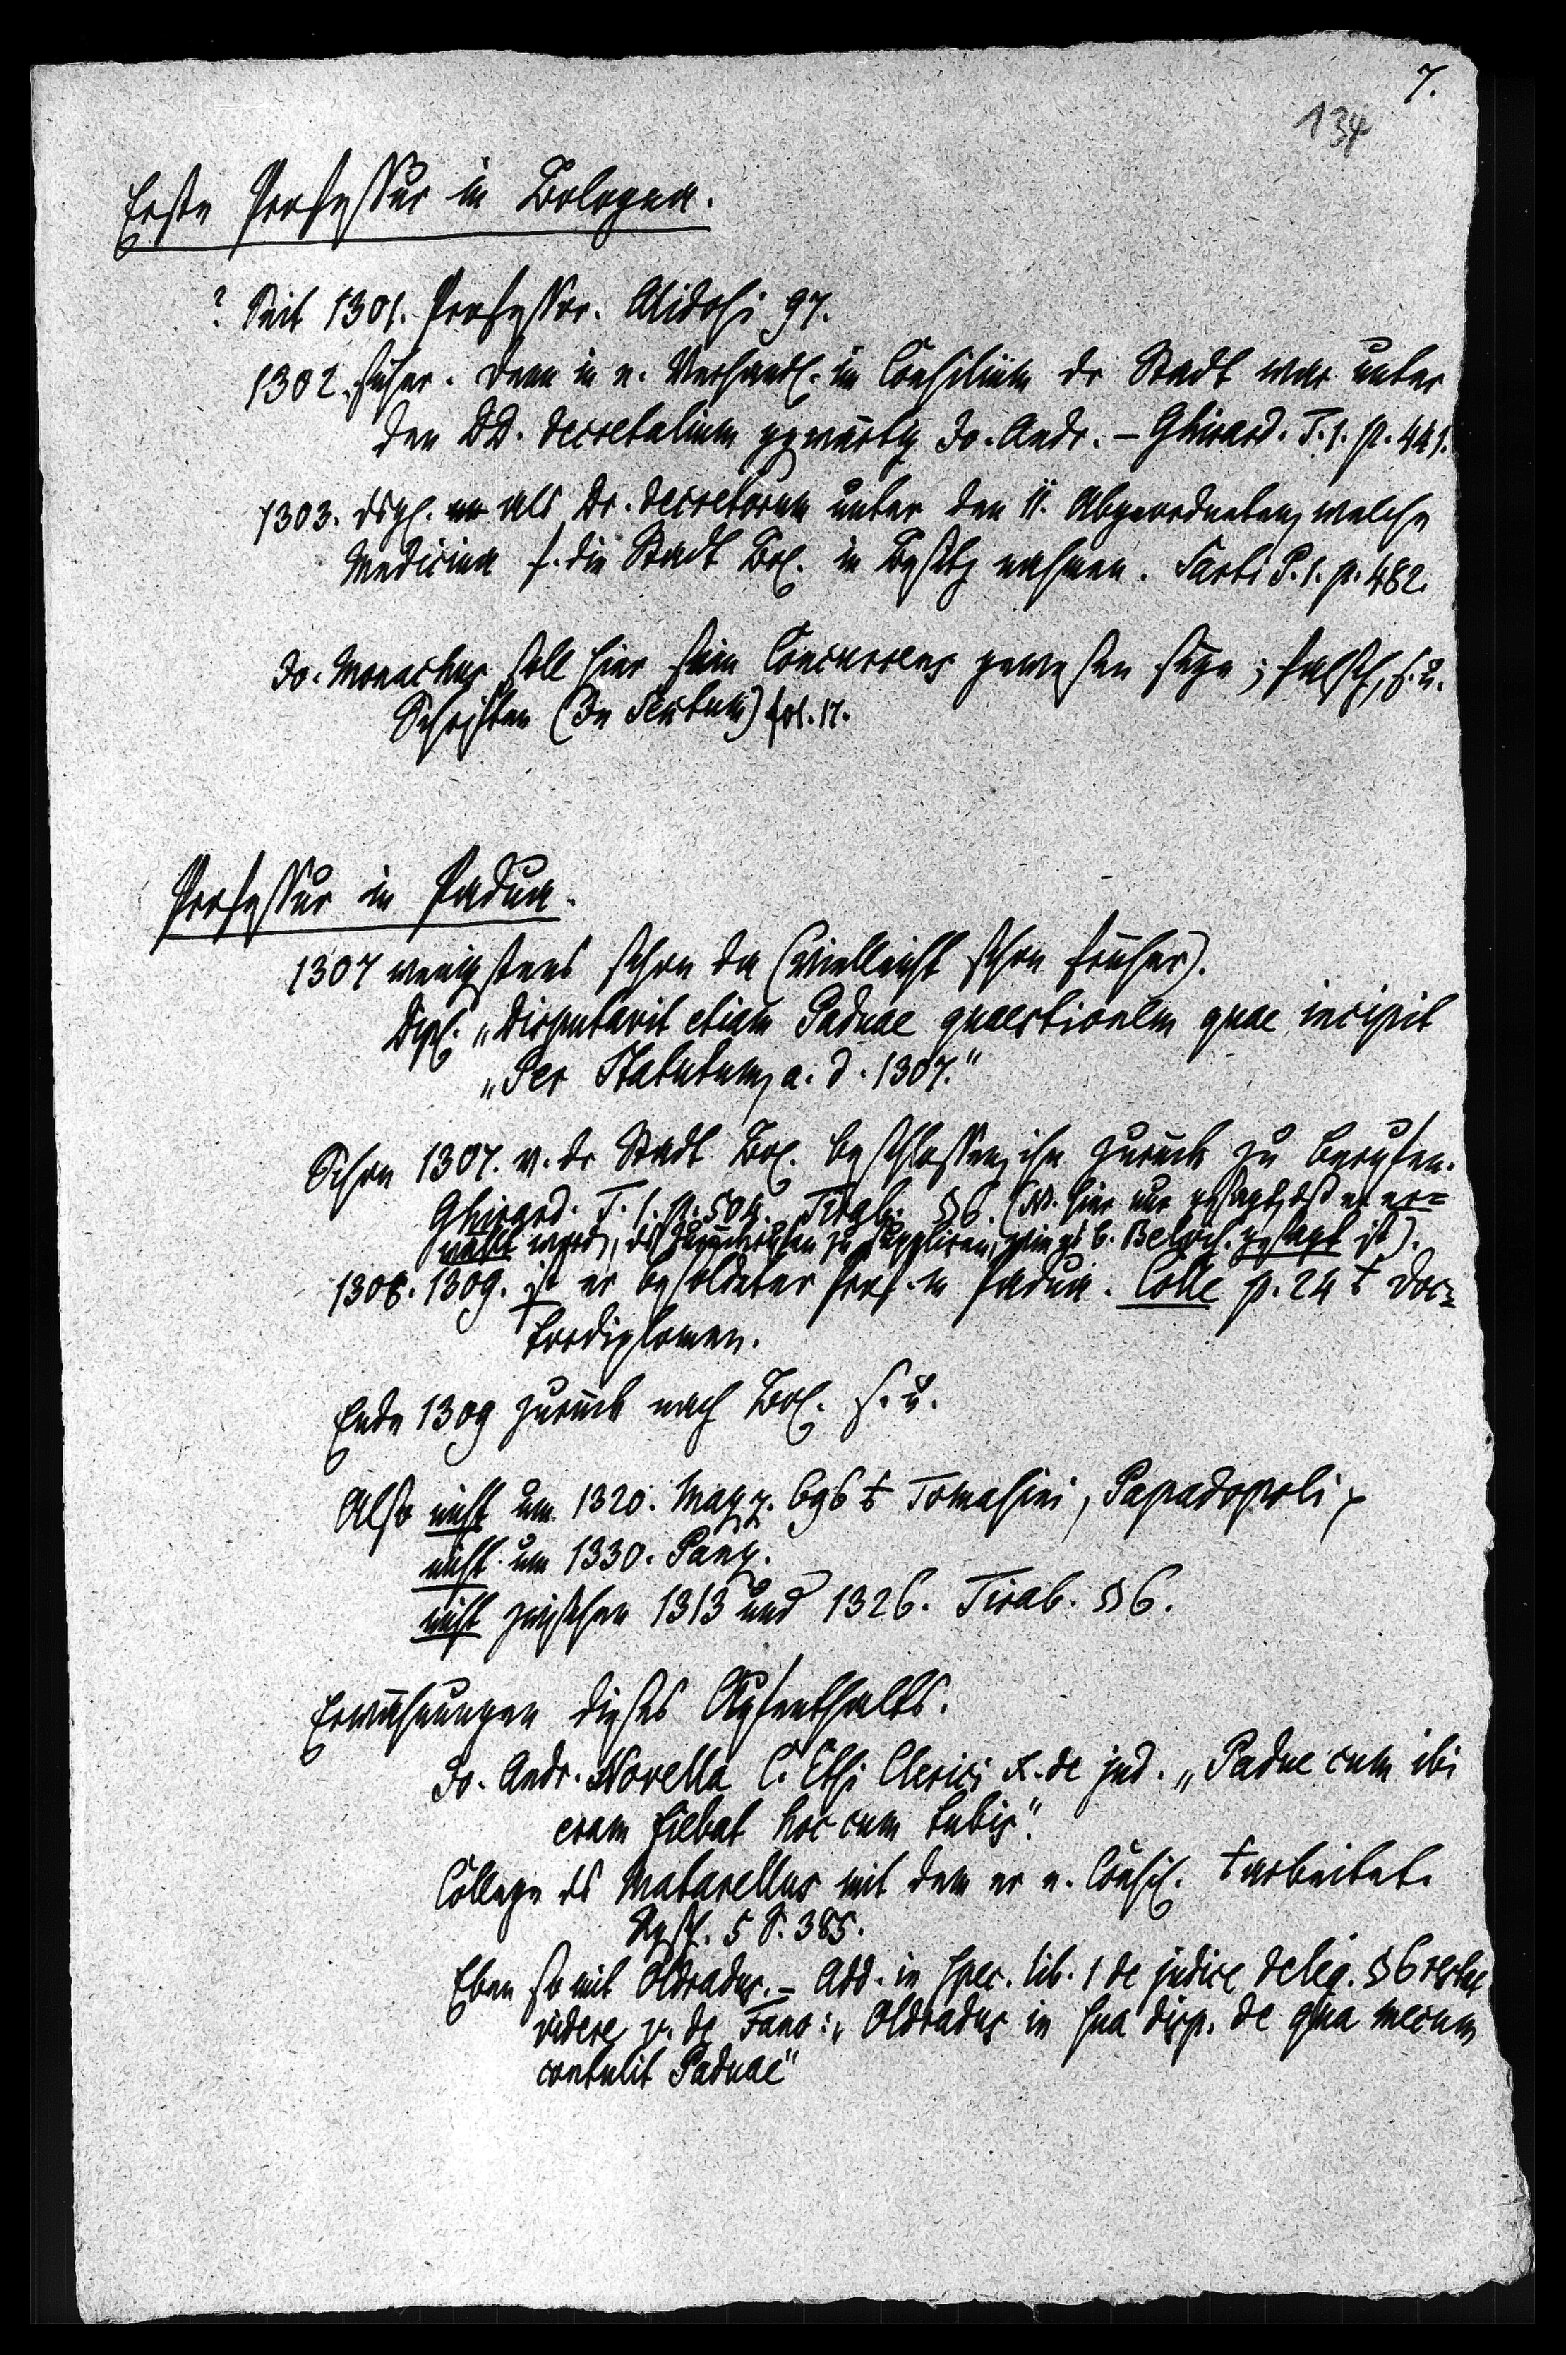 7.
134
Erste Professur in Bologna.
? Seit 1301. Professor. Alidosi 97.
1302. sicher. denn in e. Verhandl. im Consilium dr Stadt war unter
den DD. decretalium gegenwärtig Jo. Andr. – Ghirard. T. 1. p. 441.
1303. dsgl. als Dr. decretorum unter den 11. Abgeordneten, welche
Medicina f. die Stadt Bol. in Besitz nahmen. Sarti P. 1. p. 482.
Jo. Monachus soll hier sein Concurrens gewesen seyn; falsch, s. u.
Schriften (In Sextum) fol. 17.
Professur in Padua.
1307 wenigstens schon da (vielleicht schon früher).
Dipl. „Disputavit etiam Paduae quaestionem quae incipit
„Per Statutum, a. d. 1307."
Schon 1307. v. dr Stadt Bol. beschlossen, ihn zurück zu berufen.
Ghirard. T. 1. p. 504. Tirab. §6. (W. hier nur gesagt, dß er er=
wählt word, zurückrufen zu suppliren, wie es b. Beloch. gesagt ist).
1308. 1309. ist er besoldeter Prof. in Padua. Colle p. 24 + Doc=
tordiplomen.
Ende 1309 zurück nach Bol. s. u.
Also nicht um 1320. Mazz. 696 + Tomasini, Papadopoli,
nicht um 1330. Panz.
nicht zwischen 1313 und 1326. Tirab. §6.
Erwähnungen dieses Aufenthalts.
Jo. Andr. Novella C. Etsi Clerici X. de jud. „Padue cum ibi
eram fiebat hoc cum tubis".
College ds Matarellus mit dem er e. Consil. + arbeitet.
Rgsch. 5 S. 385.
Eben so mit Oldradus. – Add. in Spec. lib. 1 de judice deleg. §6 restat
videre, p. de Fano: „Oldradus in sua disp. de qua mecum
contulit Paduae"